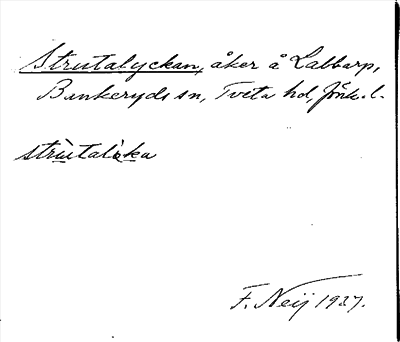 Strutalyckan, åker å Lalbarp,
Bankeryds sn, Tveta hd, Jönk. l.
strùtalỳka
F. Neij 1927.